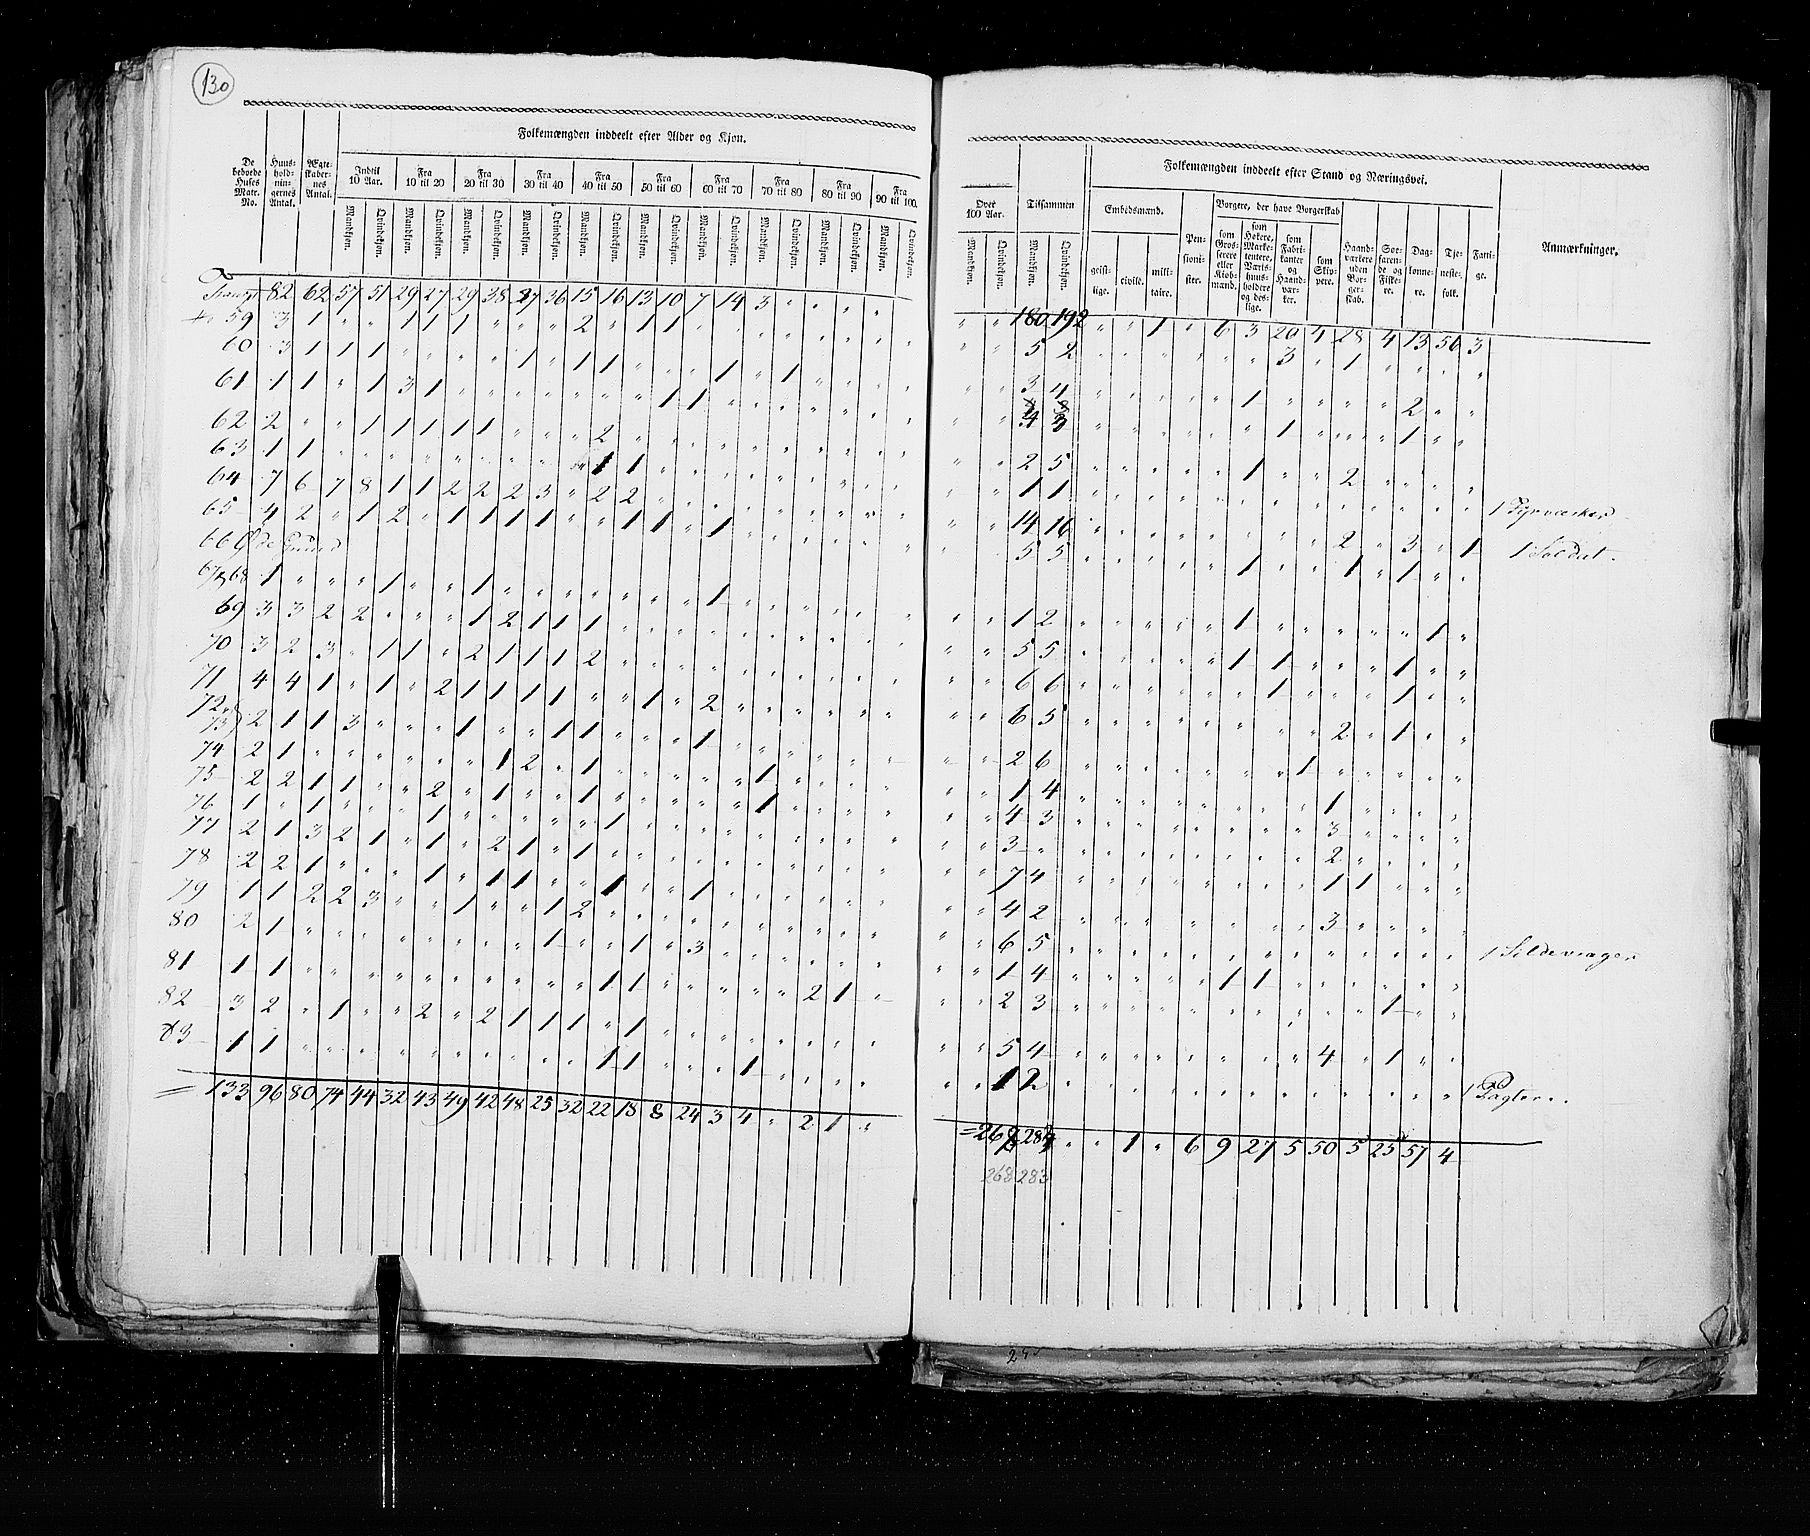 130
Folkemængden inddeelt efter Alder og Kjøn.
De beboede Huses Matr. No. Huus-hold-nin-gernes Antal. Ægte-skaber-nes Antal. Indtil 10 Aar. Fra 10 til 20 Fra 20 til 30 Fra 30 til 40 Fra 40 til 50 Fra 50 til 60 Fra 60 til 70 Fra 70 til 80 Fra 80 til 90 Fra 90 til 100.
Mandkjøn. Qvindekjøn. Mandkjøn. Qvindekjøn. Mandkjøn. Qvindekjøn. Mandkjøn. Qvindekjøn. Mandkjøn. Qvindekjøn. Mandkjøn. Qvindekjøn. Mandkjøn. Qvindekjøn. Mandkjøn. Qvindekjøn. Mandkjøn. Qvindekjøn. Mandkjøn. Qvindekjøn.
Transpt 82 62 57 51 29 27 29 38 27 36 15 16 13 10 7 14 3 " " " "
59 3 1 " " 1 1 1 " " " 2 " 1 1
60 3 1 1 1 " " " " 1 " 1 1 " " " 1 " 1
61 1 1 " 1 3 1 " " " " " " " 1 1
62 2 " " 1 1 1 1 1 " " " 2
63 1 1 " " " " " " " " " 1 1
64 7 6 7 8 1 1 2 2 2 3 " 2 2
65 4 2 " 1 2 " 1 1 1 1 " " 1 1 " 1
66 Øde Grund
67 & 68 1 " " " " 1 " " 1 " " " " " " " 1
69 3 3 2 2 " " " 1 2 1 1 1
70 3 2 3 " 1 1 " 2 1 1 1 2
71 4 4 1 " 1 " 2 1 1 1 1 " " 1 " 2
72 &
73 2 1 1 3 " " " 1 " " 1 1 " " " 1
74 2 1 " " " " " " " 1 2 " 1 " " " " " 1
75 2 2 1 1 " " 2 " 1 " " 1 " " " " " 1
76 1 " 1 " " " 1 " " " " " 1
77 2 1 3 2 1 " 1 " 2 1 " 1
78 2 2 1 " " " 1 " 1 1 " " 1 " " 1
79 1 1 2 2 3 " " 1 " " 1 2
80 2 1 " " " " " " " " 1 " " 1 " 3
81 1 1 " " " " " " " " " " 1 1 " " " " " 2 1
82 3 2 " 1 " " 2 " 2 1 1 1 " 1
83 1 1 " " " " " " " " " " 1 1 " " " 1
= 133 96 80 74 44 32 43 49 42 48 25 32 22 18 8 24 3 4 " 2 1 "
Folkemængden inddeelt efter Stand og Næringsvei.
Over 100 Aar. Tilsammen Embedsmænd. Pen-sioni-ster. Borgere, der have Borgerskab Haand-værkere uden Bor-ger-skab. Søe-faren-de og Fiske-re. Dag-lønne-re. Tje-neste-folk. Fatti-ge. Anmærkninger.
Mandkjøn. Qvindekjøn. Mandkjøn. Qvindekjøn. geist-lige. civile. mili-taire. som Gros-serere eller Kjøb-mænd. som Høkere, Marke-tentere, Værts-huus-holdere og des-lige. som Fabri-kanter og Haand-vær-ker. som Skip-pere.
" " 180 192 " " 1 " 6 3 20 4 28 4 13 56 3
" " 5 2 " " " " " " 3 " 1
3 4 " " " " " 1 " " " " 2
4 3 " " " " " " 1 " " " 1
2 5 " " " " " 1 " " 2
1 1
" " 14 16 " " " " " " " " 2 " 3 " 1 1 Fyrvæsker
5 5 " " " " " 1 " " 1 " 1 1 Soldat.
1 2 " " " " " 1 " " " " " 1
5 5 " " " " " 1 1 " " " 1
6 6 " " " " " " 1 " " " 1
6 5 " " " " " " " " 2 " 1
2 6 " " " " " " " 1
1 4 " " " " " " " " 1
4 3 " " " " " " " " 3
3 " " " " " " " " " 2
7 4 " " " " " " " " 1 1
4 2 " " " " " " " " 3
6 5 1 Sildevrager
1 4 " " " " " 1 1
2 3 " " " " " " " " " " 1
5 4 " " " " " " " " 4 " 1
1 2 1 Pagter.
= 267 284 " " 1 " 6 9 27 5 50 5 25 57 4
268 283